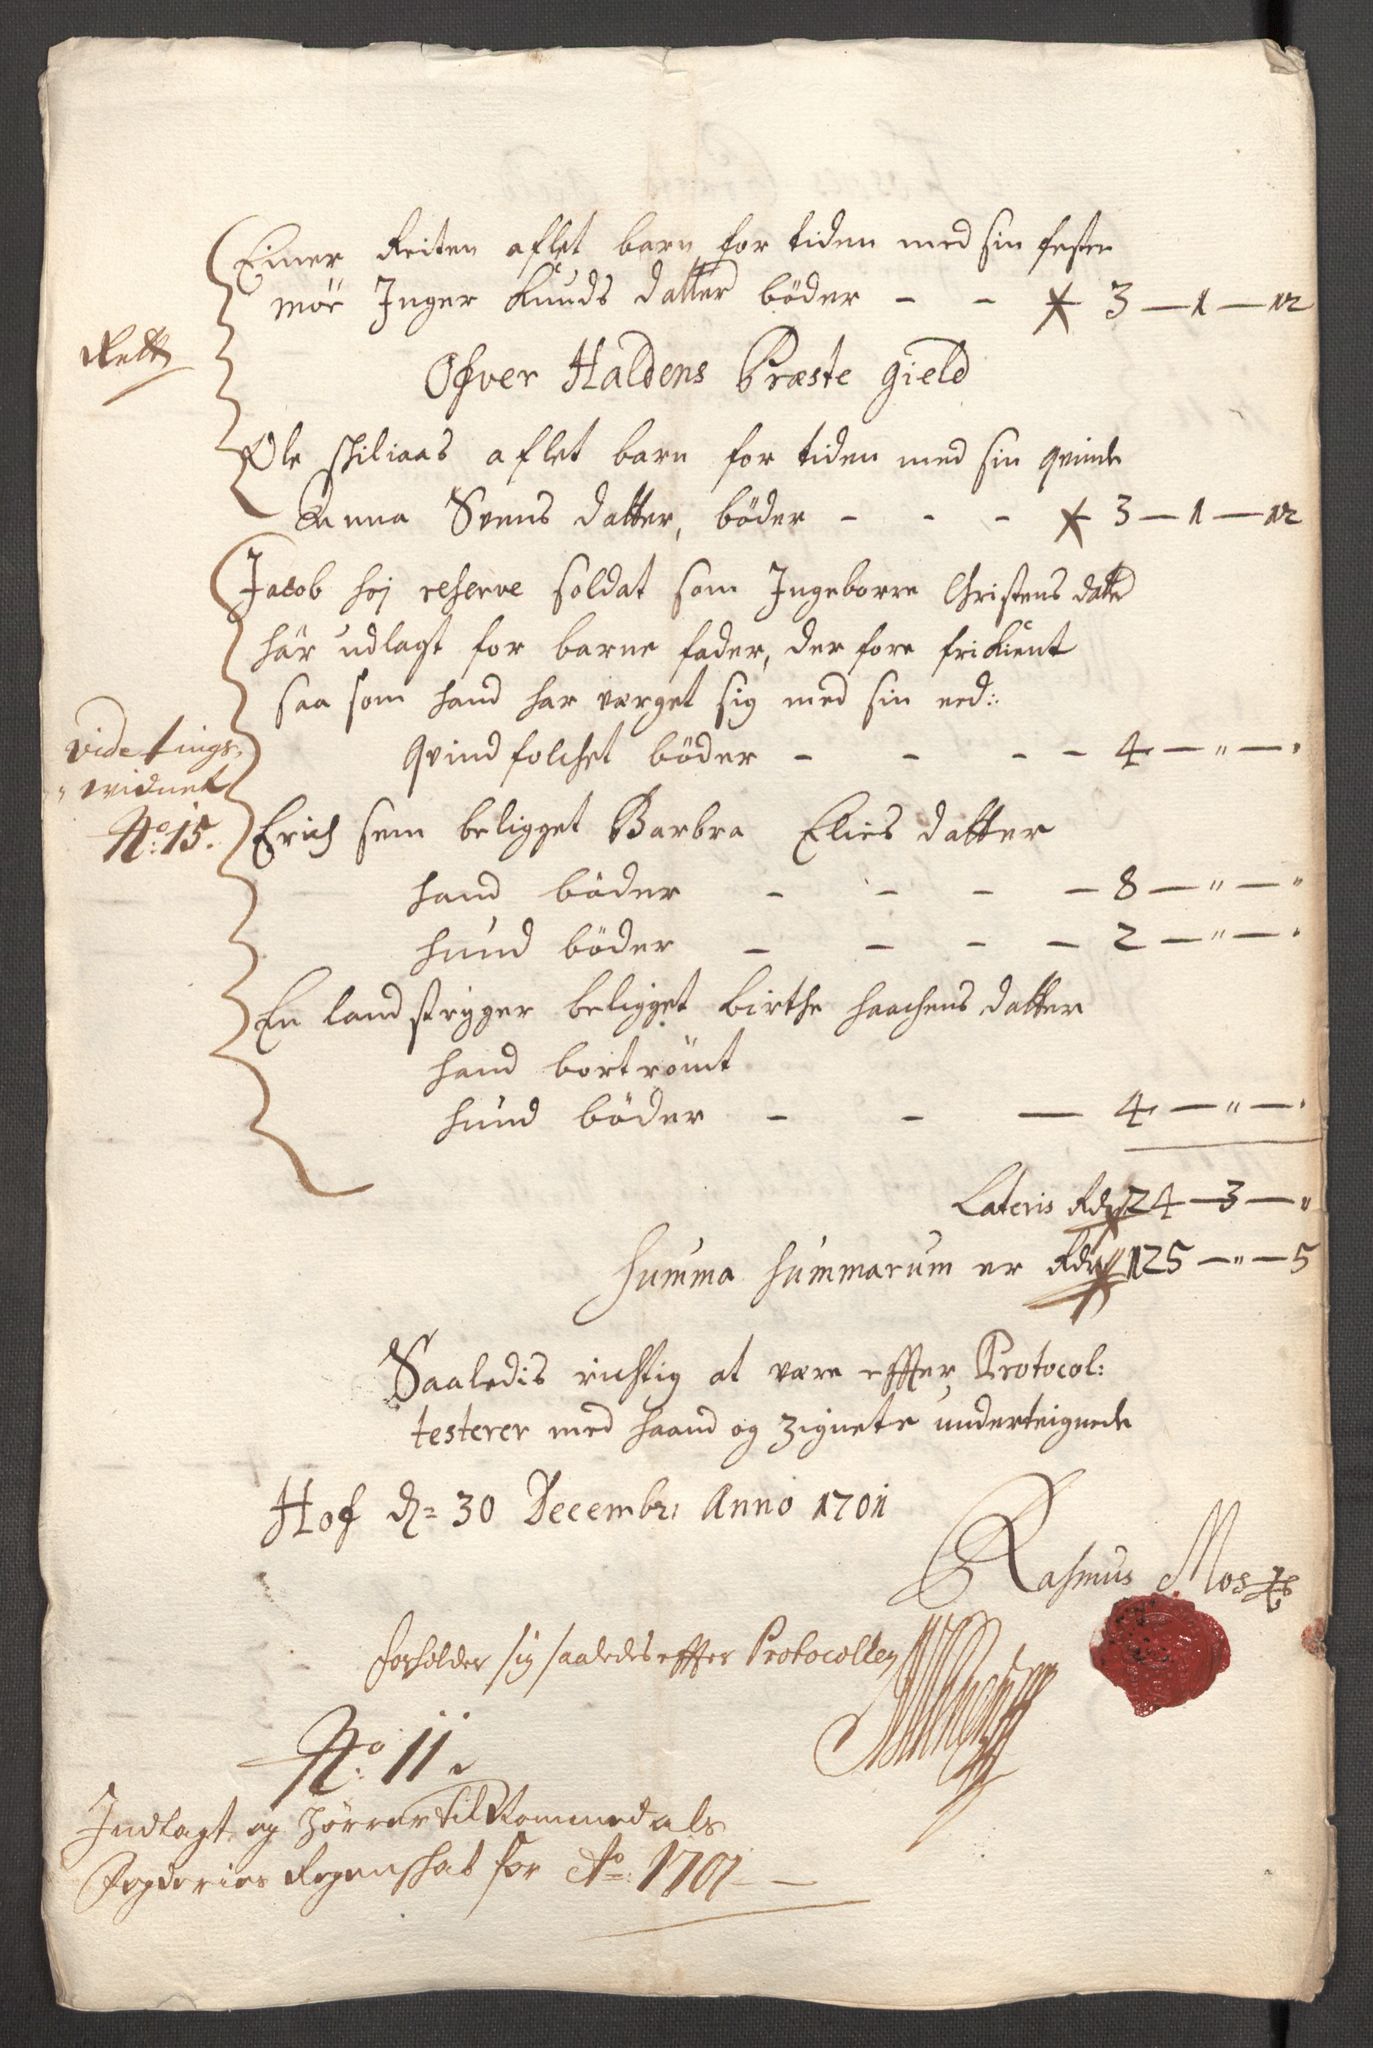 Einer Reiten aflet barn for tiden med sin feste
møe Inger Knuds datter böder - - 3 — 1 — 12
Rett
Ofver Haldens Præste gield
Ole Skiliaas aflet barn for tiden med sin qvinde
Anna Svens datter, böder - - - 3 — 1 — 12
Jacob hoj reserve soldat som Ingeborre Christens datter
här udlagt for barne fader, der fore frikient
saa som hand har værget sig med sin eed:
vide tings
qvindfolchet böder - - - - 4 — " — "
widnet
No: 15.
Erich sem beligget Barbra Elies datter
hand böder - - - - 8 — " — "
hund böder - - - - 2 — " — "
En landstryger beligget birthe haachens datter
hand bortrömt
hund böder - - — 4 — " — "
Lateris Rdr 24 — 3 — "
Summa Summarum er Rdr 125 — " — 5
Saaledis richtig at være effter Protocol:
testerer med haand og Zignete underteignede
Hof d= 30 Decembr: Anno 1701
Rasmus Mos
forholder sig saaledes effter Protocollen
No: 11.
Indlagt og hörrer til Rommedals
Fogderies Regenskab for Ao: 1701